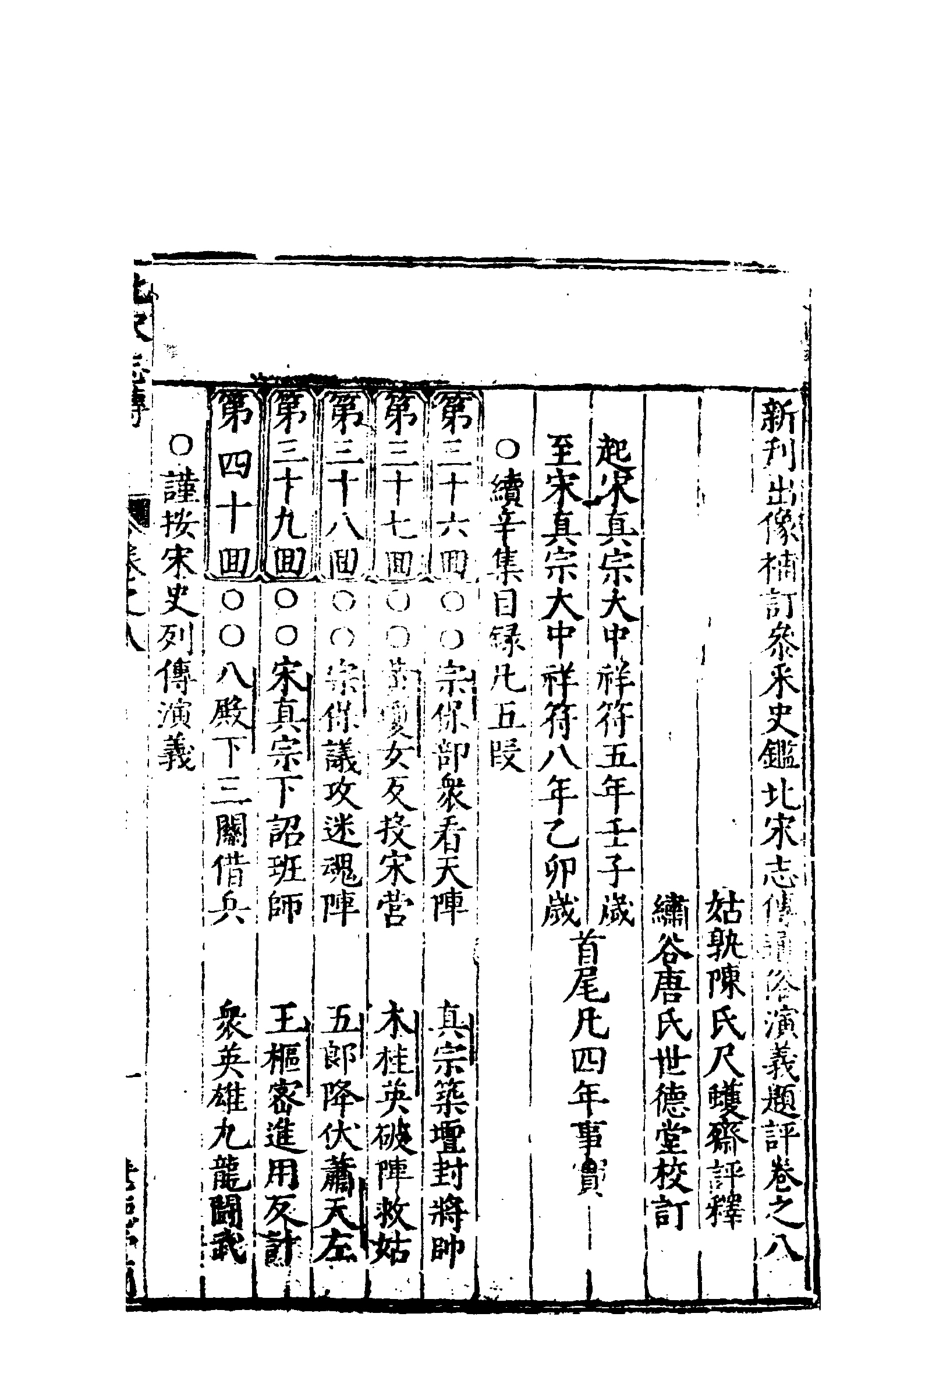 新刊出像補訂參采史鑑北宋志傳通俗演義題評卷之八
姑孰陳氏尺蠖齋評釋
繡谷唐氏世德堂校訂
起宋真宗大中祥符五年壬子歲
至宋真宗大中祥符八年乙卯歲
首尾凡四年事實
○續辛集目録凡五段
第三十六回○○宗保部衆看天陣 真宗築壇封將帥
第三十七回○○黃瓊女反投宋營 木桂英破陣救姑
第三十八回○○宗保議攻迷魂陣 五郎降伏蕭天左
第三十九回○○宋真宗下詔班師 王樞密進用反計
第四十回○○八殿下三關借兵 衆英雄九龍鬪武
○謹按宋史列傳演義
北宋志傳 卷之八 一 世德堂刊